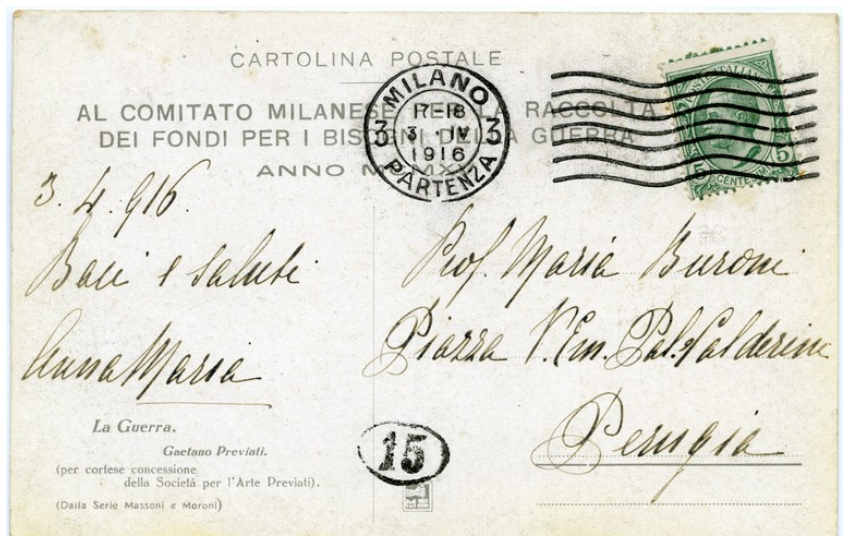 CARTOLINA POSTALE
AL COMITATO MILANESE PER LA RACCOLTA
DEI FONDI PER I BISOGNI DELLA GUERRA
ANNO
MILANO
17-18
3 3 · IV 3
1916
PARTENZA
POSTE ITALIANE
5 5
CENTESIMI
3.4.916.
Baci e saluti
Anna Maria
Prof. Maria Buroni
Piazza V. Em. Pal. Calderini
Perugia
La Guerra.
Gaetano Previati.
(per cortese concessione
della Società per l'Arte Previati).
(Dalla Serie Massoni e Moroni)
15